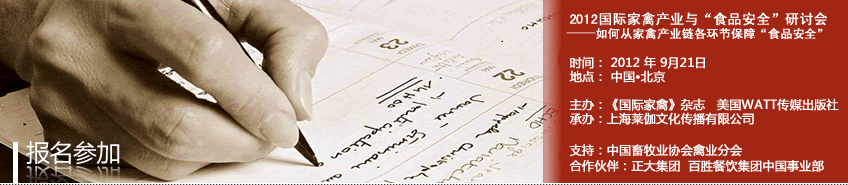 报名参加
23
22
2012国际家禽产业与“食品安全”研讨会
——如何从家禽产业链各环节保障“食品安全”
时间： 2012 年 9月21日
地点： 中国•北京
主办：《国际家禽》杂志 美国WATT传媒出版社
承办：上海莱伽文化传播有限公司
支持：中国畜牧业协会禽业分会
合作伙伴：正大集团 百胜餐饮集团中国事业部